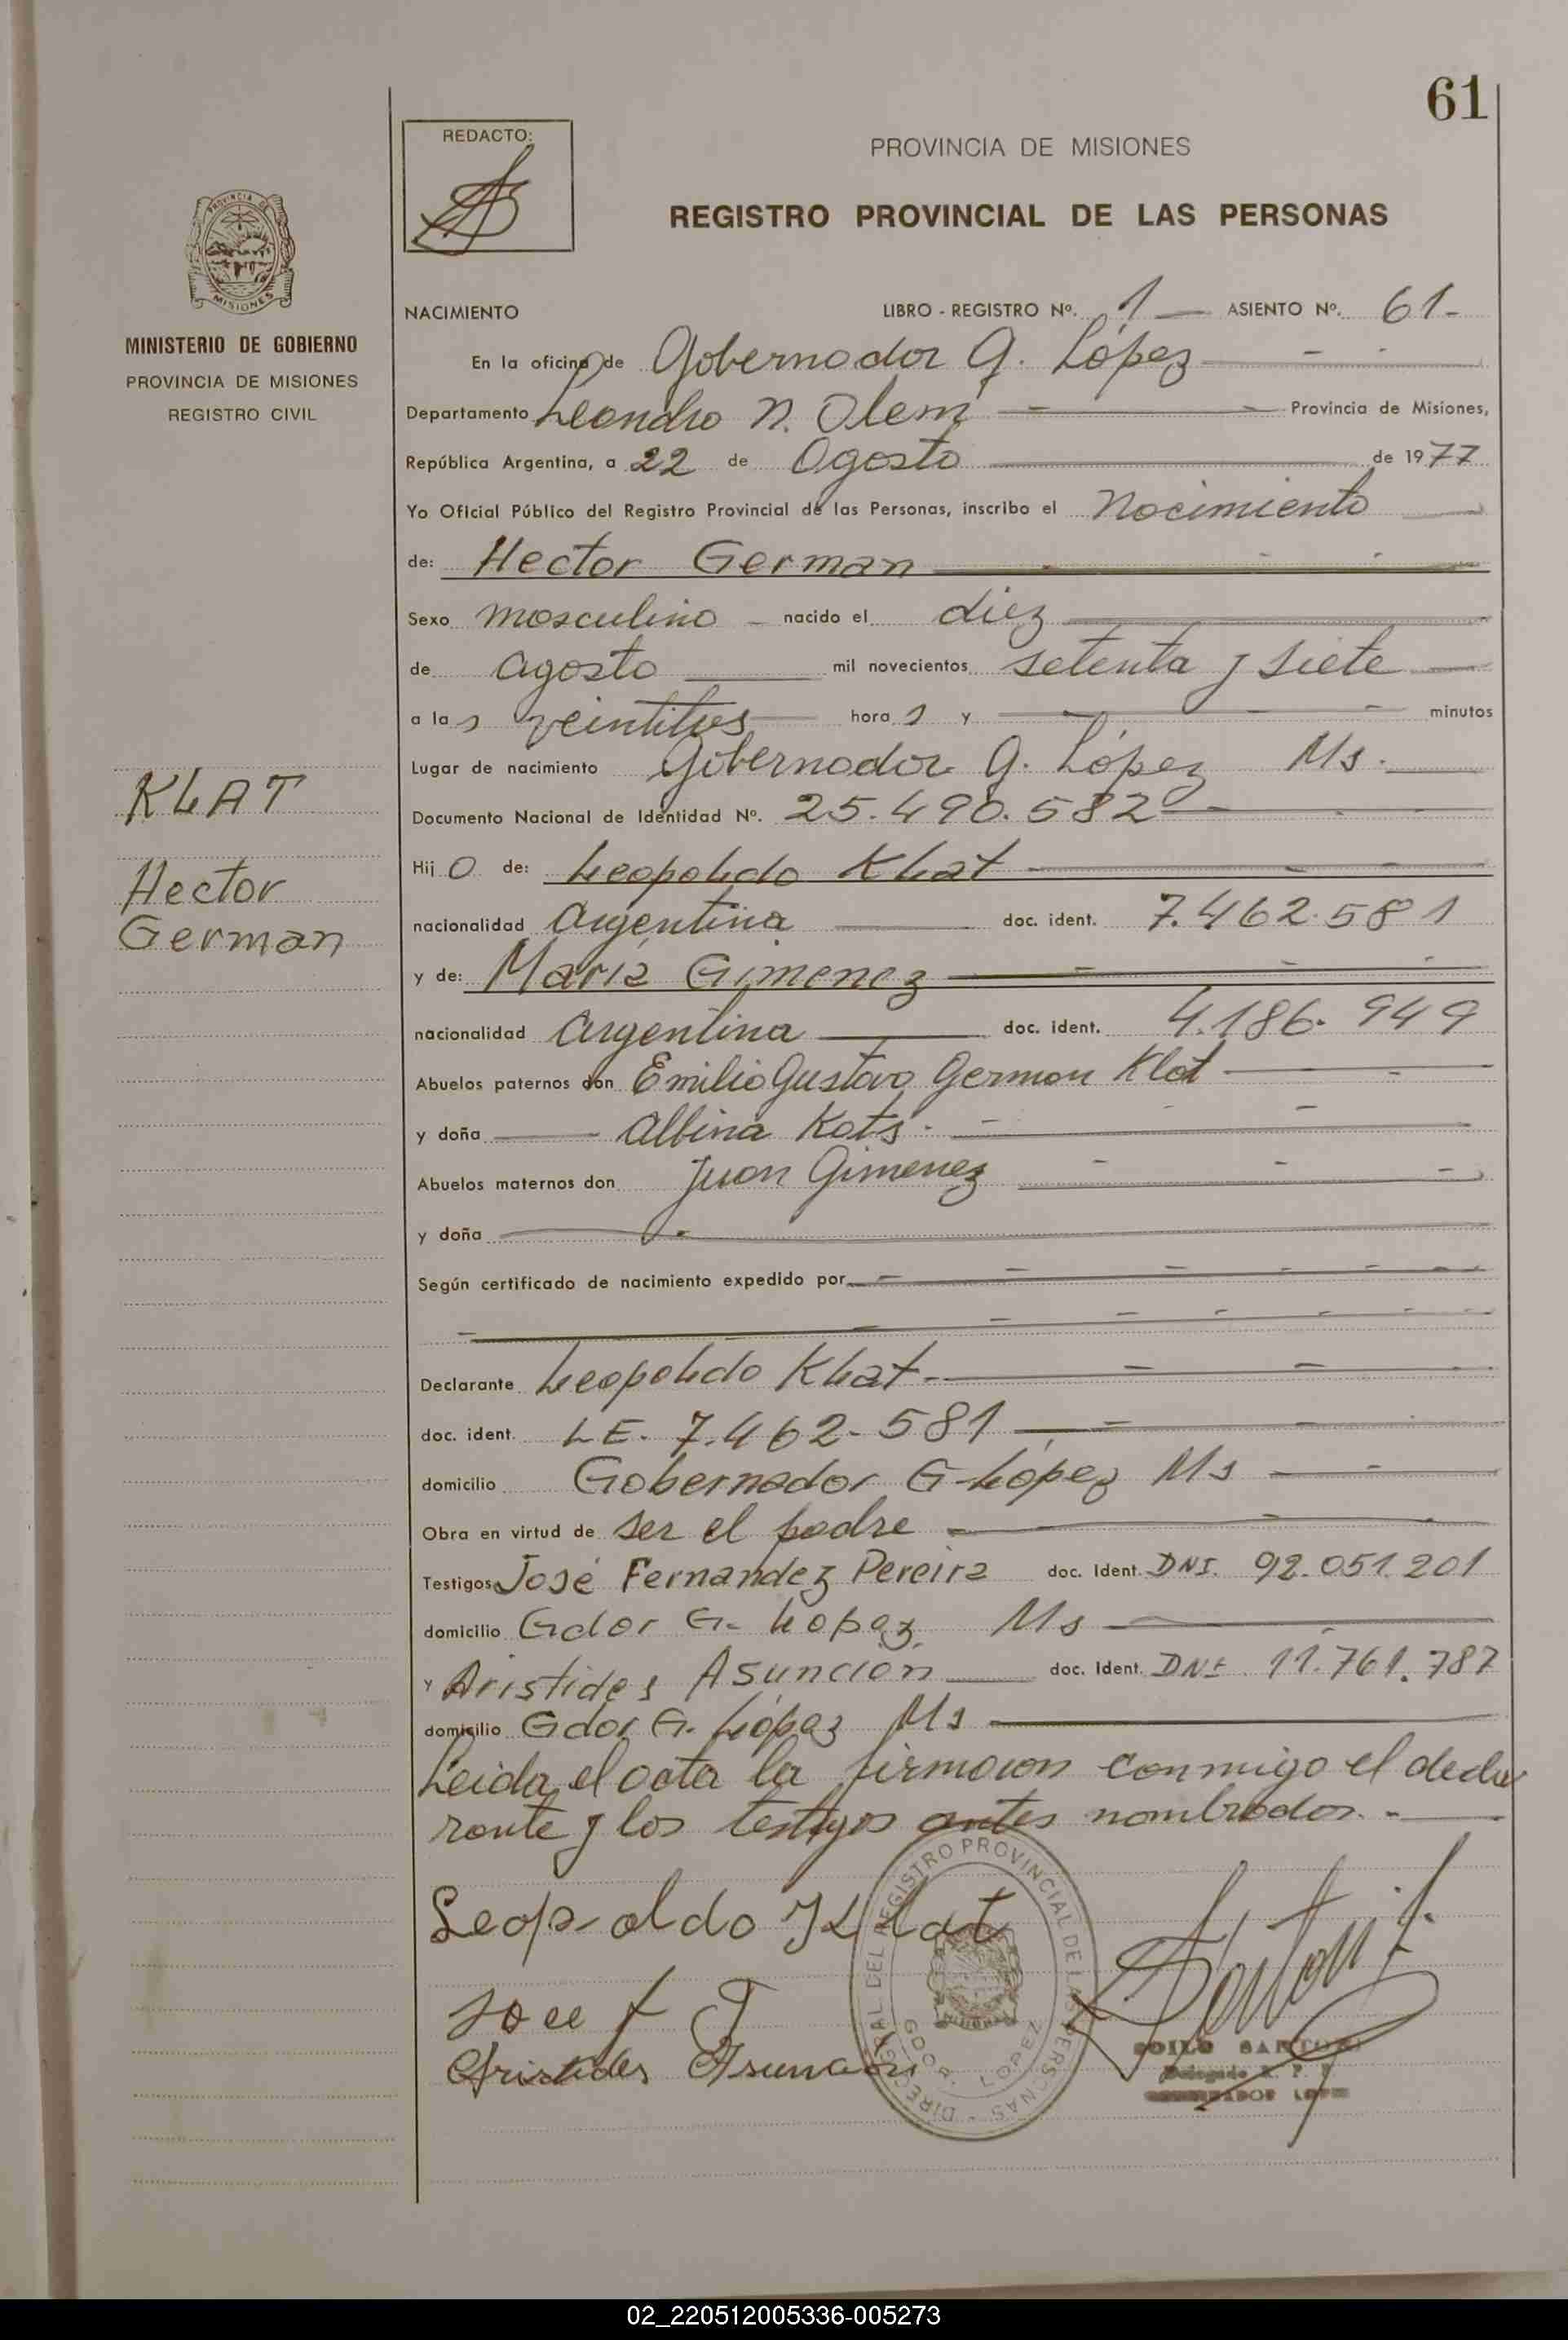 61
REDACTO:
PROVINCIA DE MISIONES
REGISTRO PROVINCIAL DE LAS PERSONAS
PROVINCIA DE
MISIONES
MINISTERIO DE GOBIERNO
PROVINCIA DE MISIONES
REGISTRO CIVIL
KLAT
Hector
German
NACIMIENTO LIBRO - REGISTRO Nº. 1 — ASIENTO Nº. 61-
En la oficina de Gobernador G. López
Departamento Leandro N. Alem Provincia de Misiones,
República Argentina, a 22 de Agosto de 1977
Yo Oficial Público del Registro Provincial de las Personas, inscribo el Nacimiento
de: Hector German
Sexo masculino - nacido el diez
de agosto mil novecientos setenta y siete
a las veintitres horas y minutos
Lugar de nacimiento Gobernador G. López Ms.
Documento Nacional de Identidad Nº. 25.490.582
Hijo de: Leopoldo Klat
nacionalidad Argentina doc. ident. 7.462.581
y de: Maria Gimenez
nacionalidad Argentina doc. ident. 4.186.949
Abuelos paternos don Emilio Gustavo German Klat
y doña Albina Kots.
Abuelos maternos don Juan Gimenez
y doña
Según certificado de nacimiento expedido por
Declarante Leopoldo Klat
doc. ident. LE. 7.462.581
domicilio Gobernador G. López Ms
Obra en virtud de ser el padre
Testigos José Fernandez Pereira doc. Ident. DNI. 92.051.201
domicilio Gdor G. Lopez Ms
y Aristides Asunción doc. Ident. DNI. 11.761.787
domicilio Gdor G. López Ms
Leida el acta la firmaron conmigo el decla
rante y los testigos antes nombrados.-
Leopoldo Klat
Jose F
Aristides Asuncion
DIREC GRAL DEL REGISTRO PROVINCIAL DE LAS PERSONAS
GDOR. LOPEZ
ZOILO SANTOS
Delegado R. P. P.
GOBERNADOR LOPEZ
02_220512005336-005273